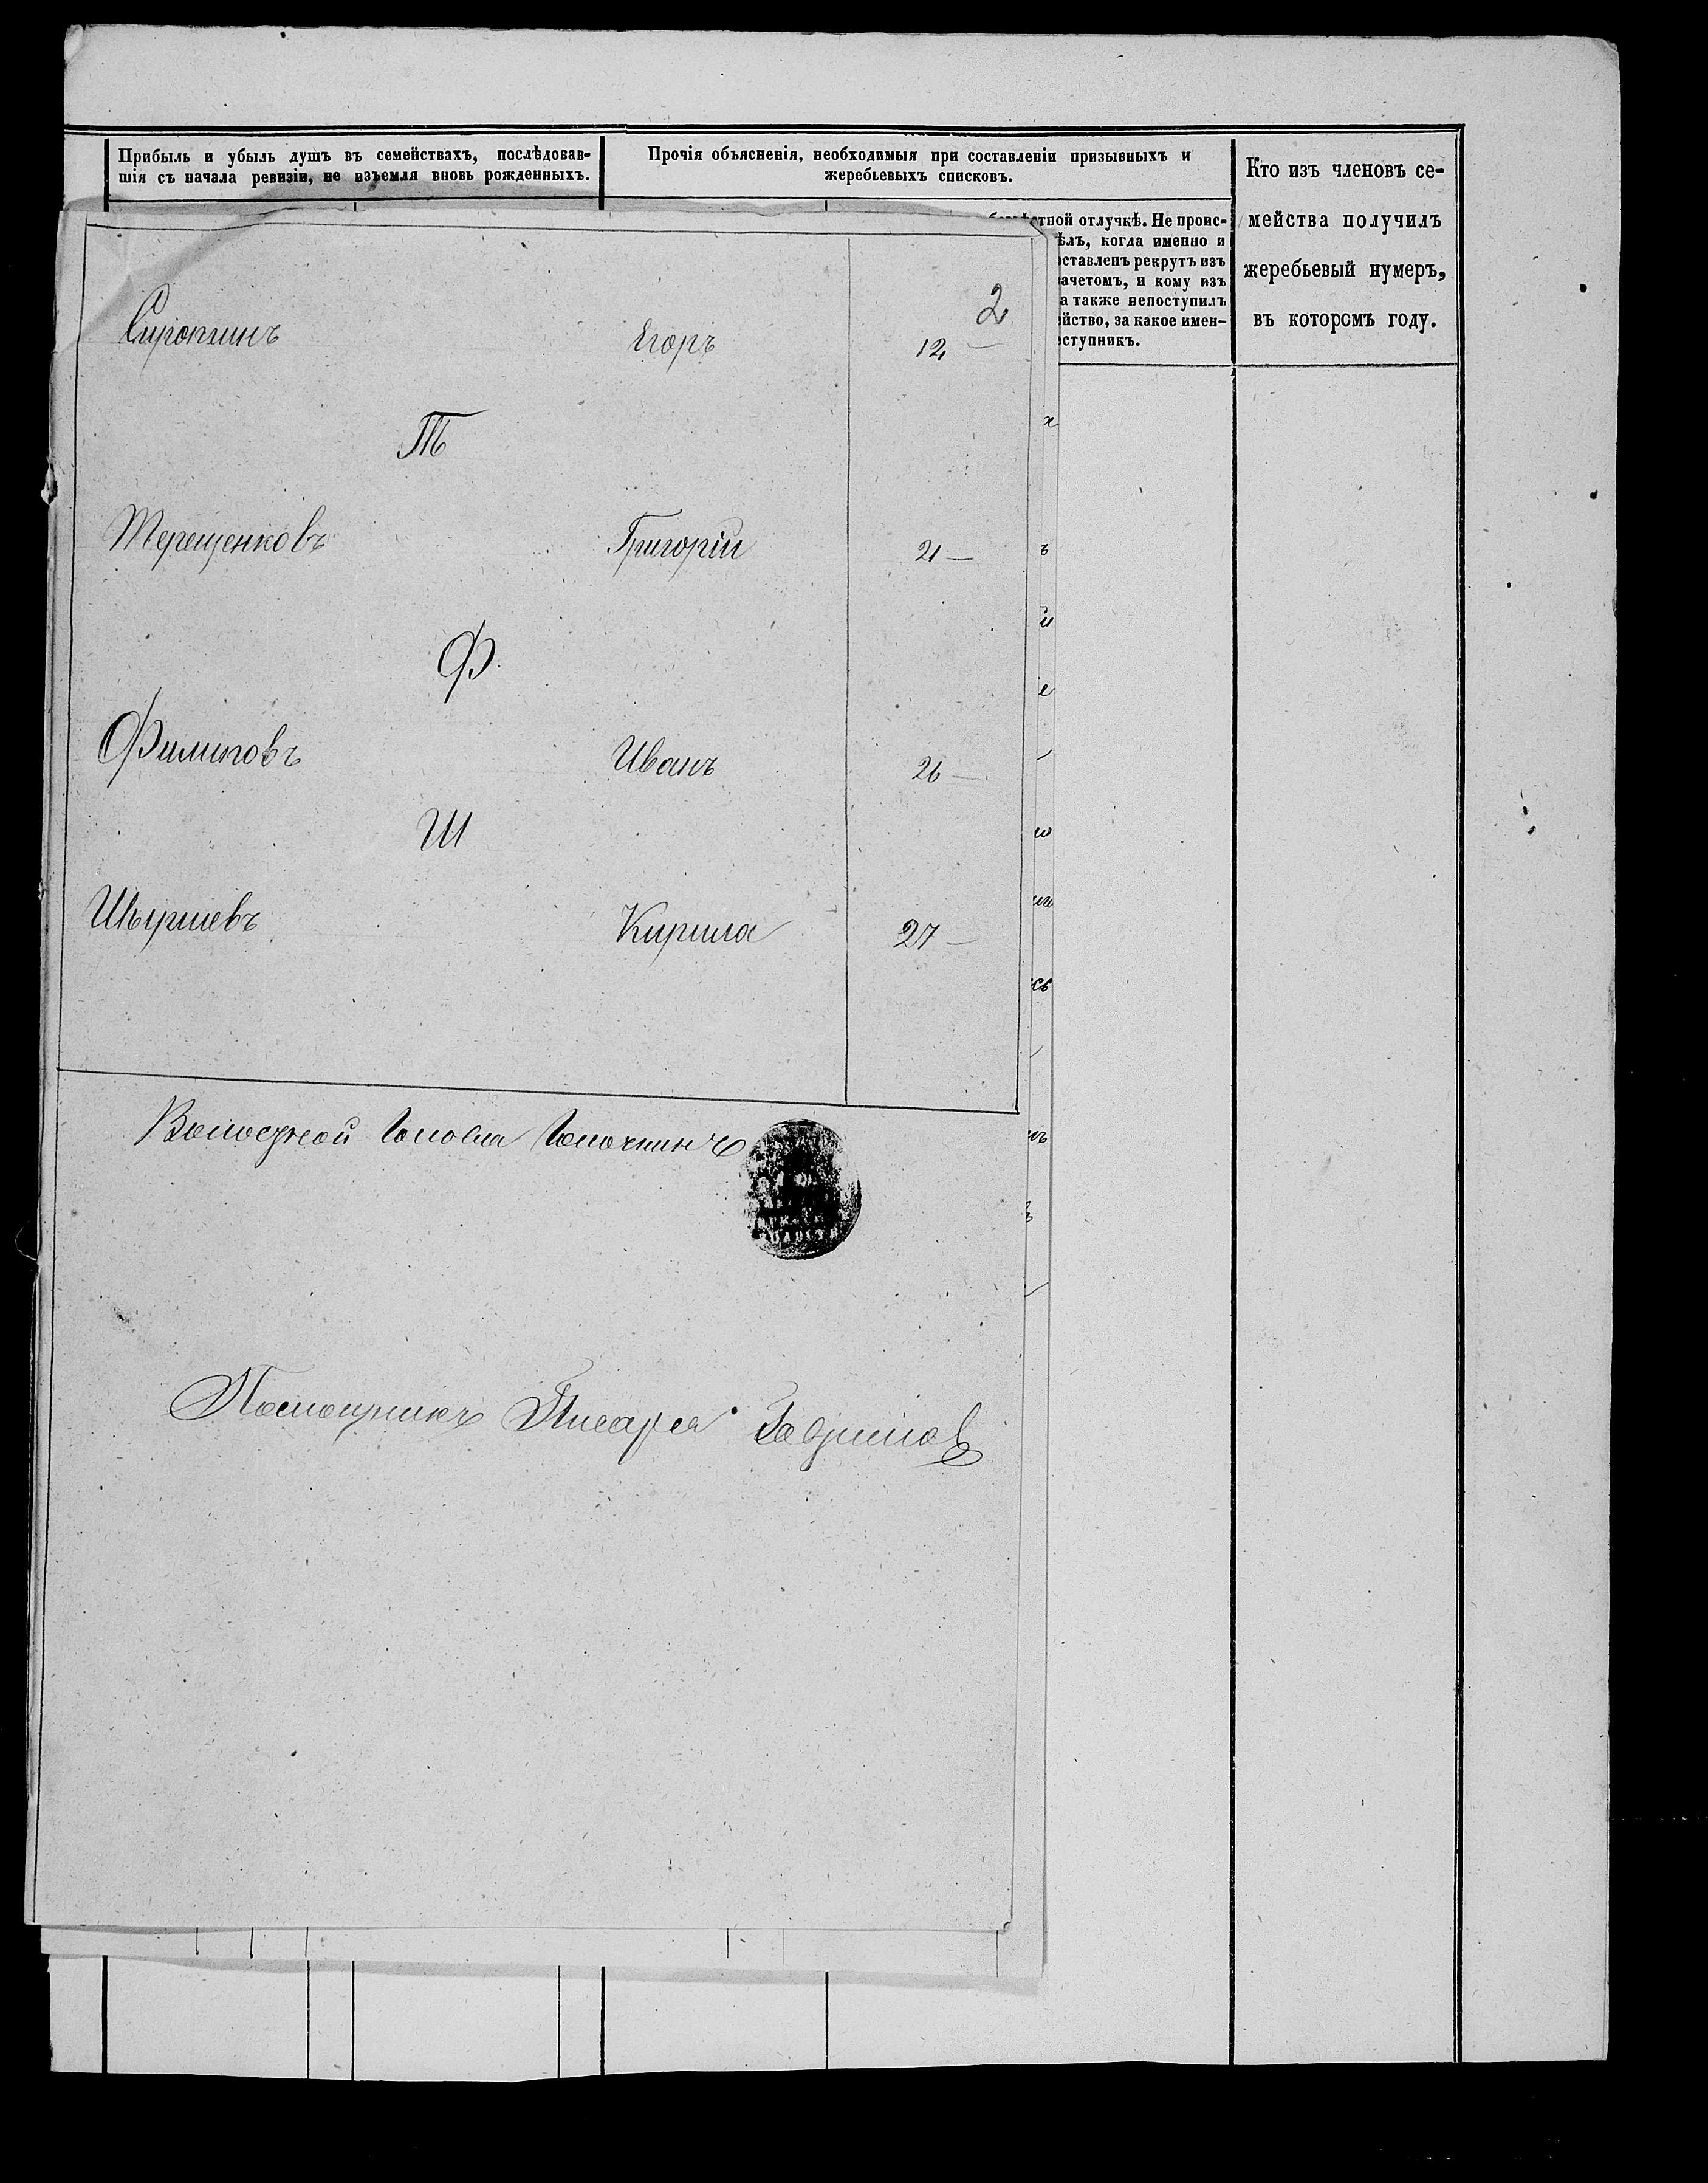 Прибыль и убыль душъ въ семействахъ, послѣдовав-
шія съ начала ревизіи, не изъемля вновь рожденныхъ.
Прочія объясненія, необходимыя при составленіи призывныхъ и
жеребьевыхъ списковъ.
Кто изъ членовъ се-
мейства получилъ
жеребьевый нумеръ,
въ которомъ году.
отлучкѣ. Не проис-
когда именно и
рекрутъ изъ
и кому изъ
а также непоступилъ
за какое имен-
2
Сиротинъ Егоръ 12 —
Т
Терещенковъ Григорій 21 —
Ф.
Филиповъ Иванъ 26 —
Ш
Кирила 27 —
Волостной Голова
Помощникъ Писаря Гаврилов